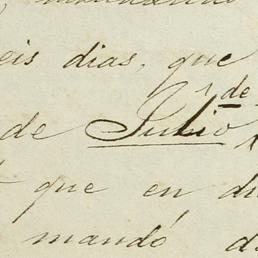 eis dias, que
de
de Julio
que en du
mandó d